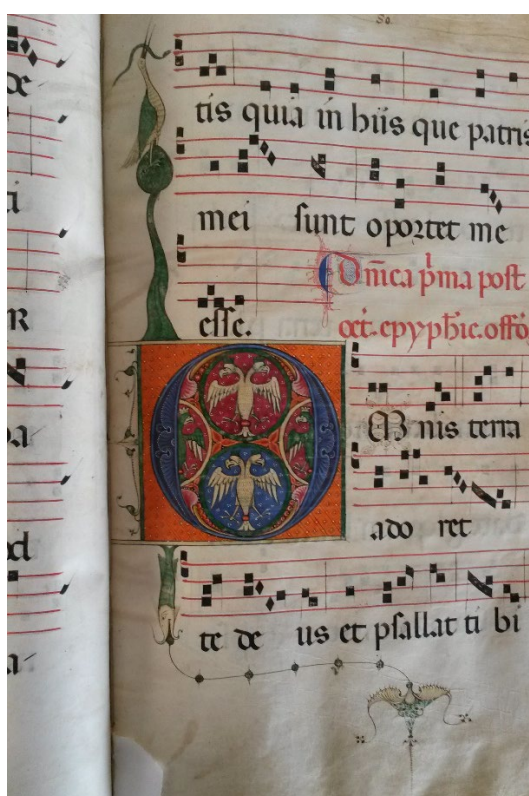 tis quia in hiis que patris
mei sunt oportet me
D̄nica p̄ma post
esse. oct. epyphie. offō.
OMnis terra
ado ret
te de us et psallat ti bi